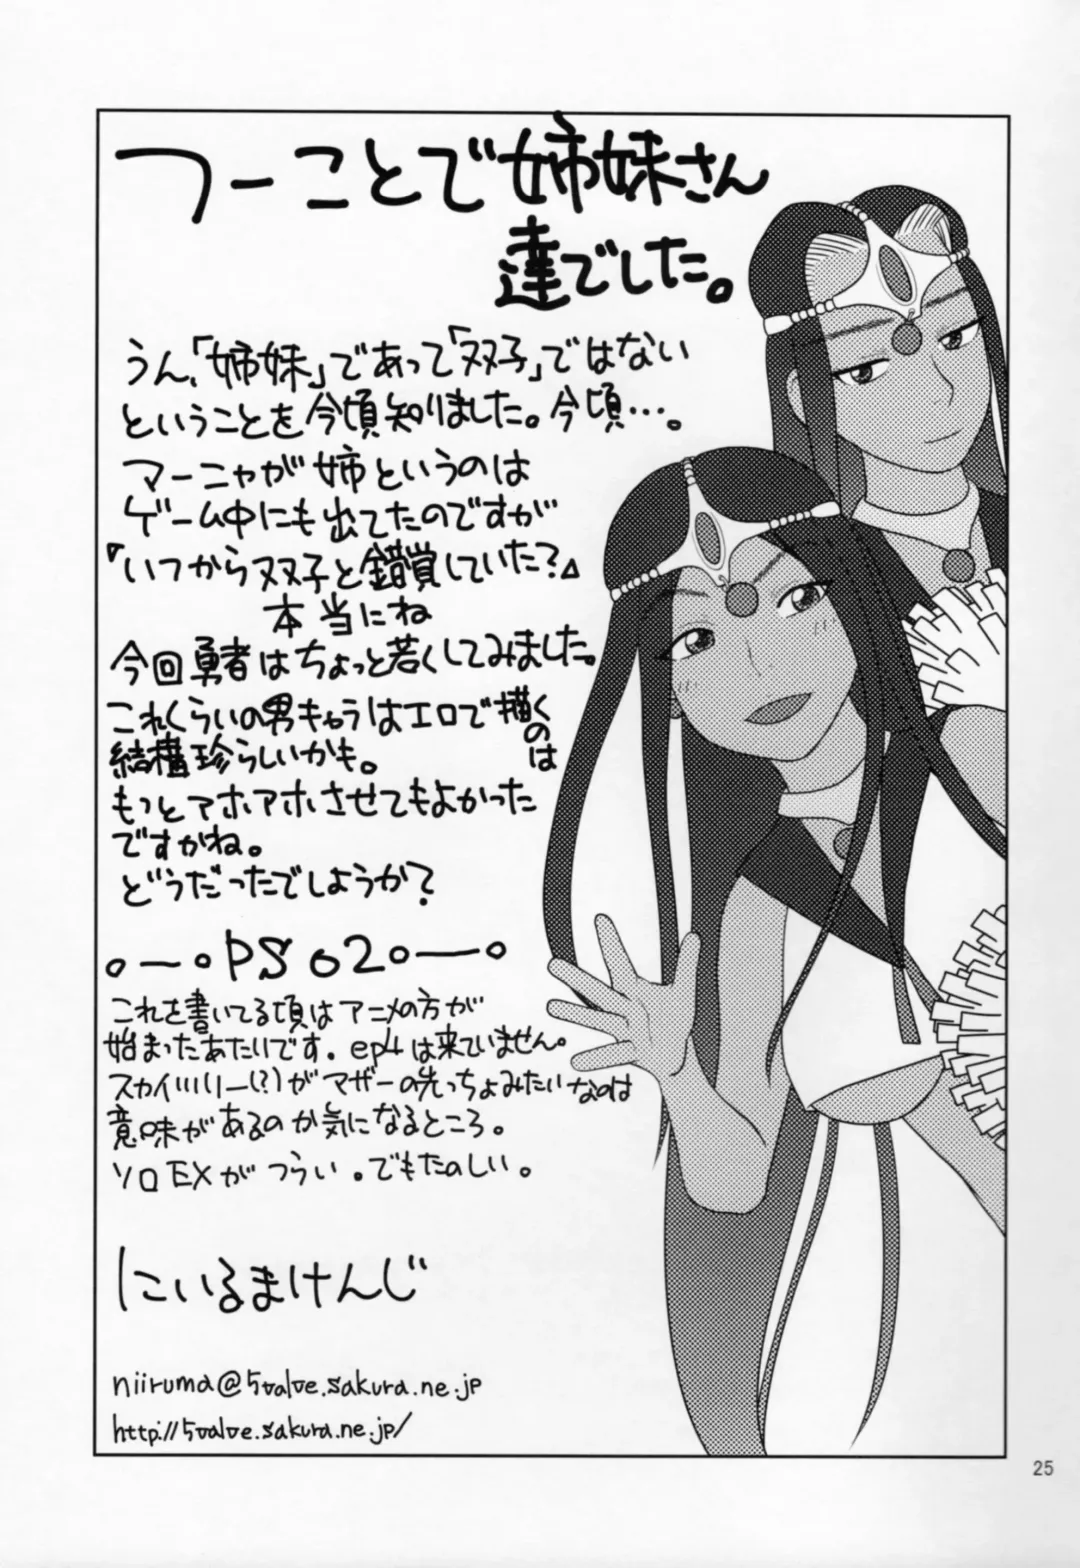 つーことで姉妹さん
達でした。
うん、「姉妹」であって「双子」ではない
ということを今頃知りました。今頃…。
マーニャが姉というのは
ゲーム中にも出てたのですが
『いつから双子と錯覚していた?』
本当にね
今回勇者はちょっと若くしてみました。
これくらいの男キャラはエロで描くのは
結構珍らしいかも。
もっとアホアホさせてもよかった
ですがね。
どうだったでしょうか?
PSo2
これを書いてる頃はアニメの方が
始まったあたりです。ep4は来ていません。
スカイツリー(?)がマザーの先っちょみたいなのは
意味があるのか気になるところ。
ソロEXがつらい。でもたのしい。
にいるまけんじ
niiruma@5valve.sakura.ne.jp
http://5valve.sakura.ne.jp/
25